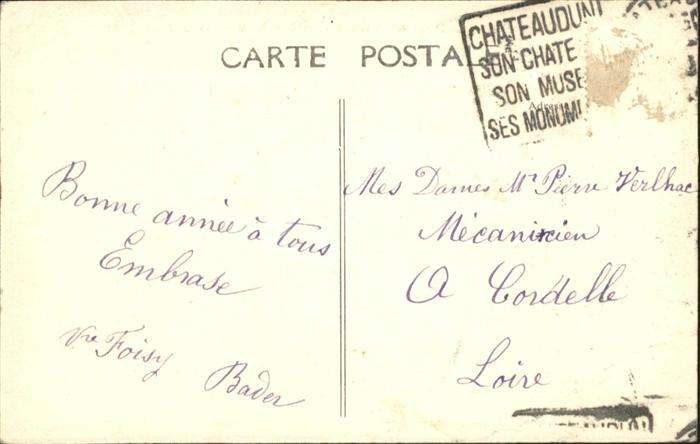 CARTE POSTALE
CHATEAUDUN
SON CHATE
SON MUSE
SES MONUM
Bonne année à tous
Embrase
Vve Foisy
Bader
Mes Dames Mr Pierre Verlhac
Mécanicien
A Cordelle
Loire